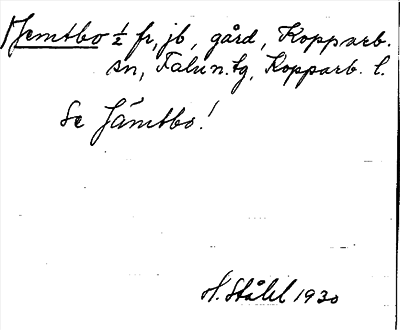 Jemtbo ½ fr, jb, gård, Kopparb.
sn, Falun. tg, Kopparb. l.
Se Jämtbo!
H. Ståhl 1930